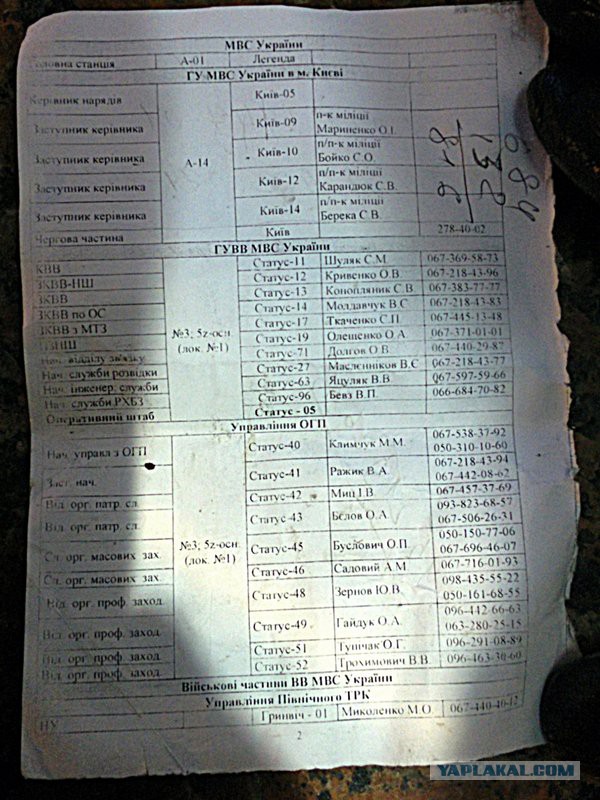 МВС України
Головна станція А-01 Легенда
ГУ МВС України в м. Києві
Керівник нарядів А-14 Київ-05
Заступник керівника Київ-09 п-к міліції Мариненко О.І.
Заступник керівника Київ-10 п/п-к міліції Бойко С.О.
Заступник керівника Київ-12 п/п-к міліції Карандюк С.В.
Заступник керівника Київ-14 п/п-к міліції Берека С.В.
Чергова частина Київ 278-40-02
ГУВВ МВС України
КВВ №3; 5z-осн. (лок. №1) Статус-11 Шуляк С.М. 067-369-58-73
ЗКВВ-НШ Статус-12 Кривенко О.В. 067-218-43-96
ЗКВВ Статус-13 Конопляник С.В. 067-383-77-77
ЗКВВ по ОС Статус-14 Молдавчук В.С. 067-218-43-83
ЗКВВ з МТЗ Статус-17 Ткаченко С.П. 067-445-13-48
Статус-19 Олещенко О.А. 067-371-01-01
Нач. відділу зв'язку Статус-71 Долгов О.В. 067-440-29-87
Нач. служби розвідки Статус-27 Маслєнников В.Є. 067-218-43-77
Нач. інженер. служби Статус-63 Яцуляк В.В. 067-597-59-66
Нач. служби РХБЗ Статус-96 Бевз В.П. 066-684-70-82
Оперативний штаб Статус - 05
Управління ОГП
Нач. управл з ОГП №3; 5z-осн. (лок. №1) Статус-40 Климчук М.М. 067-538-37-92
050-310-10-60
Заст. нач. Статус-41 Ражик В.А. 067-218-43-94
067-442-08-62
Від. орг. патр. сл. Статус-42 Миц І.В. 067-457-37-69
Від. орг. патр. сл. Статус-43 Бєлов О.А. 093-823-68-57
067-506-26-31
Сл. орг. масових зах. Статус-45 Буслович О.П. 050-150-77-06
067-696-46-07
Сл. орг. масових зах. Статус-46 Садовий А.М. 067-716-01-93
Від. орг. проф. заход. Статус-48 Зернов Ю.В. 098-435-55-22
050-161-68-55
Від. орг. проф. заход. Статус-49 Гайдук О.А. 096-442-66-63
063-280-25-15
Від. орг. проф. заход. Статус-51 О.Г. 096-291-08-89
Від. орг. проф. заход. Статус-52 Трохимович В.В. 096-463-30-60
Військові частини ВВ МВС України
Управління Північного ТРК
НУ Гринвіч - 01 Миколенко М.О.
2
YAPLAKAL.COM